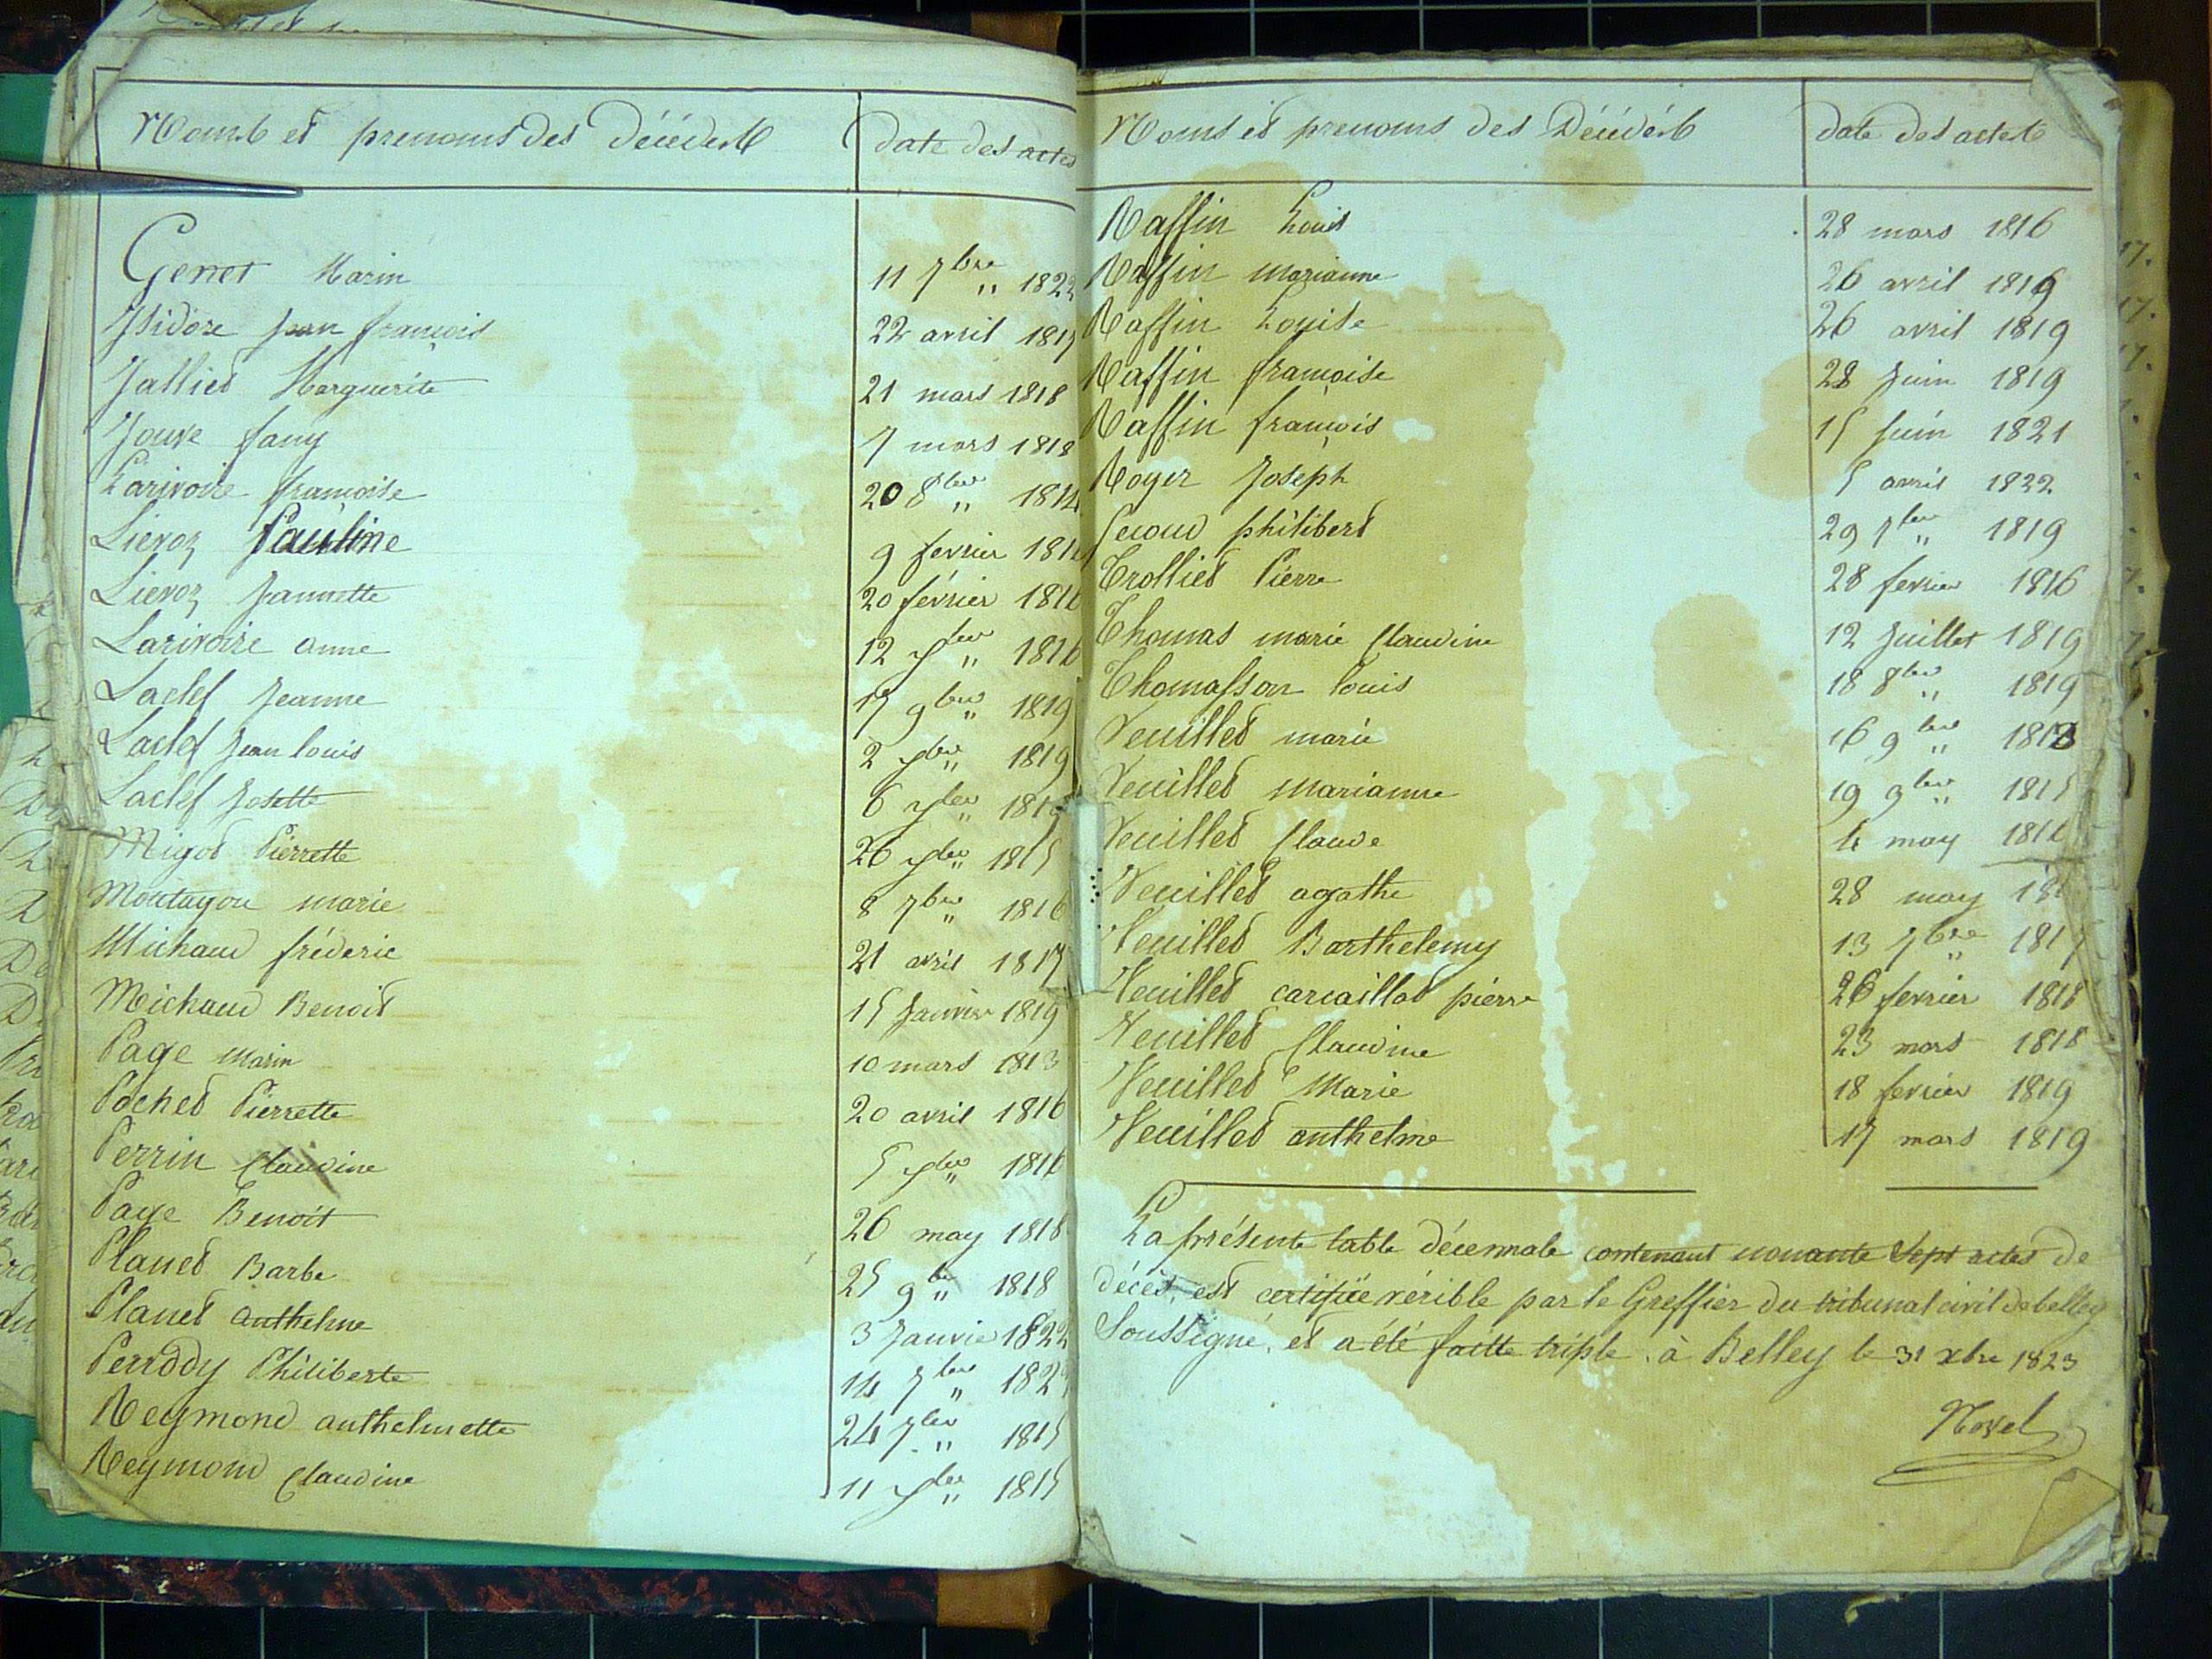 Noms et prenoms des Décédés
date des actes
Genet Marin 11 7bre " 1822
Isidore jean françois 22 avril 1817
Jallied Marguerite 21 mars 1818
Jouve fany 7 mars 1818
Larivoire francoise 20 8bre " 1814
Lieroz Pauline 9 fevrier
Lieroz Jannette 20 février 1816
Larivoire anne 12 " 1816
Laclef Jeanne 17 9bre " 1819
Laclef Jean louis 2 " 1819
Laclef Josette 6 "
Migod Pierrette 26 " 1815
Montagou marie 8 7bre " 1816
Michaud fréderic 21 avril 1817
Michaud Benoit 15 Janvier 1819
Page Marin 10 mars 1813
Poched Pierrette 20 avril 1816
Perrin Claudine 5 " 1816
Page Benoit 26 may 1818
Planed Barbe 25 9bre " 1818
Planed anthelme 3 Janvie 1822
Perrody Philiberte 14 7bre "
Reymond anthelmette 24 7bre " 1815
Reymond Claudine 11 " 1815
Noms et prenoms des Décédés
date des actes
Raffin Louis 28 mars 1816
Raffin marianne 26 avril 1819
Raffin Louise 26 avril 1819
Raffin françoise 28 Juin 1819
Raffin françois 15 Juin 1821
Roger Joseph 5 avril 1822
Secoud philiberd 29 7bre " 1819
Trollied Pierre 28 fevrier 1816
Thomas marie Claudine 12 Juillet 1819
Thomasson louis 18 8bre " 1819
Veuilled marie 16 9bre " 1813
Veuilled Marianne 19 9bre " 1815
Veuilled Claude 4 may 1816
Veuilled agathe 28 may
Veuilled Barthelemy 13 7bre " 1817
Veuilled carcaillad pierre 26 fevrier 1818
Veuilled Claudine 23 mars 1818
Veuilled Marie 18 fevrier 1819
Veuilled anthelme 17 mars 1819
La présente table décennale contenant nonante Sept actes de
décès, est certifiée vérible par le Greffier du tribunal civil de belley
Soussigné, et a été faitte triple. à Belley le 31 xbre 1823